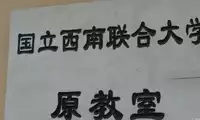 国立西南联合大学
原教室